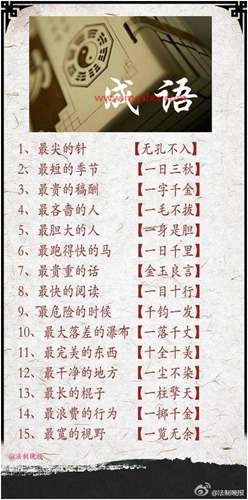 成语
1、最尖的针 【无孔不入】
2、最短的季节 【一日三秋】
3、最贵的稿酬 【一字千金】
4、最吝啬的人 【一毛不拔】
5、最胆大的人 【一身是胆】
6、最跑得快的马 【一日千里】
7、最贵重的话 【金玉良言】
8、最快的阅读 【一目十行】
9、最危险的时候 【千钧一发】
10、最大落差的瀑布 【一落千丈】
11、最完美的东西 【十全十美】
12、最干净的地方 【一尘不染】
13、最长的棍子 【一柱擎天】
14、最浪费的行为 【一掷千金】
15、最宽的视野 【一览无余】
@法制晚报
@法制晚报